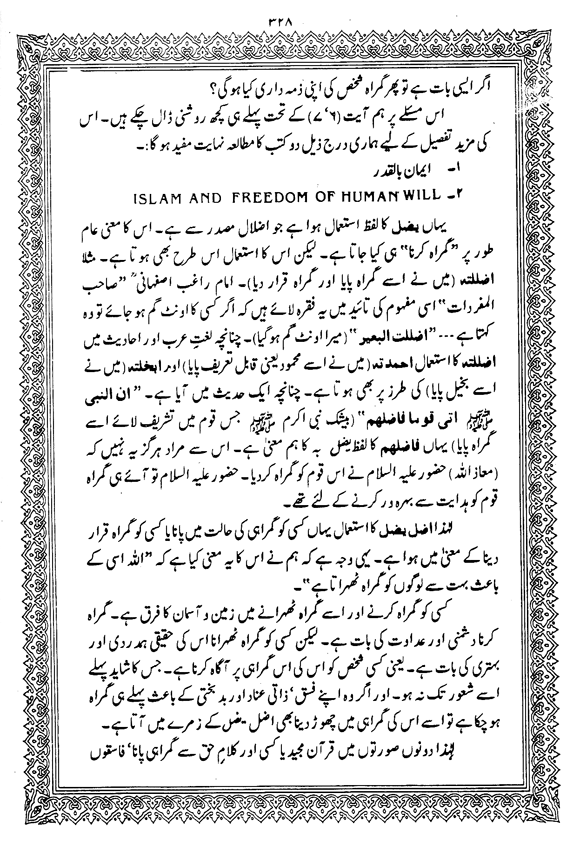 ۳۲۸
اگر ایسی بات ہے تو پھر گمراہ شخص کی اپنی ذمہ داری کیا ہوگی؟
اس مسئلے پر ہم آیت (۶‘ ۷) کے تحت پہلے ہی کچھ روشنی ڈال چکے ہیں۔ اس
کی مزید تفصیل کے لیے ہماری درج ذیل دو کتب کا مطالعہ نہایت مفید ہو گا:۔
۱۔ ایمان بالقدر
۲۔ ISLAM AND FREEDOM OF HUMAN WILL
یہاں یضل کا لفظ استعمال ہوا ہے جو اضلال مصدر سے ہے۔ اس کا معنی عام
طور پر ”گمراہ کرنا“ ہی کیا جاتا ہے۔ لیکن اس کا استعمال اس طرح بھی ہوتا ہے۔ مثلا
اضللتہ (میں نے اسے گمراہ پایا اور گمراہ قرار دیا)۔ امام راغب اصفہانیؒ ”صاحب
المفردات“ اسی مفہوم کی تائید میں یہ فقرہ لائے ہیں کہ اگر کسی کا اونٹ گم ہو جائے تو وہ
کہتا ہے --- ”اضللت البعیر“ (میرا اونٹ گم ہو گیا)۔ چنانچہ لغتِ عرب اور احادیث میں
اضللتہ کا استعمال احمدتہ (میں نے اسے محمود یعنی قابل تعریف پایا) اور ابخلتہ (میں نے
اسے بخیل پایا) کی طرز پر بھی ہوتا ہے۔ چنانچہ ایک حدیث میں آیا ہے۔ ”ان النبی
ﷺ اتی قوما فاضلھم“ (بیشک نبی اکرم ﷺ جس قوم میں تشریف لائے اسے
گمراہ پایا) یہاں فاضلھم کا لفظ یضل بہ کا ہم معنی ہے۔ اس سے مراد ہرگز یہ نہیں کہ
(معاذ اللہ) حضور علیہ السلام نے اس قوم کو گمراہ کر دیا۔ حضور علیہ السلام تو آئے ہی گمراہ
قوم کو ہدایت سے بہرہ ور کرنے کے لئے تھے۔
لہٰذا اضل یضل کا استعمال یہاں کسی کو گمراہی کی حالت میں پانا یا کسی کو گمراہ قرار
دینا کے معنیٰ میں ہوا ہے۔ یہی وجہ ہے کہ ہم نے اس کا یہ معنی کیا ہے کہ ”اللہ اسی کے
باعث بہت سے لوگوں کو گمراہ ٹھہراتا ہے“۔
کسی کو گمراہ کرنے اور اسے گمراہ ٹھہرانے میں زمین و آسمان کا فرق ہے۔ گمراہ
کرنا دشمنی اور عداوت کی بات ہے۔ لیکن کسی کو گمراہ ٹھہرانا اس کی حقیقی ہمدردی اور
بہتری کی بات ہے۔ یعنی کسی شخص کو اس کی اس گمراہی پر آگاہ کرنا ہے۔ جس کا شاید پہلے
اسے شعور تک نہ ہو۔ اور اگر وہ اپنے فسق‘ ذاتی عناد اور بدبختی کے باعث پہلے ہی گمراہ
ہو چکا ہے تو اسے اس کی گمراہی میں چھوڑ دینا بھی اضل یضل کے زمرے میں آتا ہے۔
لہٰذا دونوں صورتوں میں قرآن مجید یا کسی اور کلام حق سے گمراہی پانا‘ فاسقوں